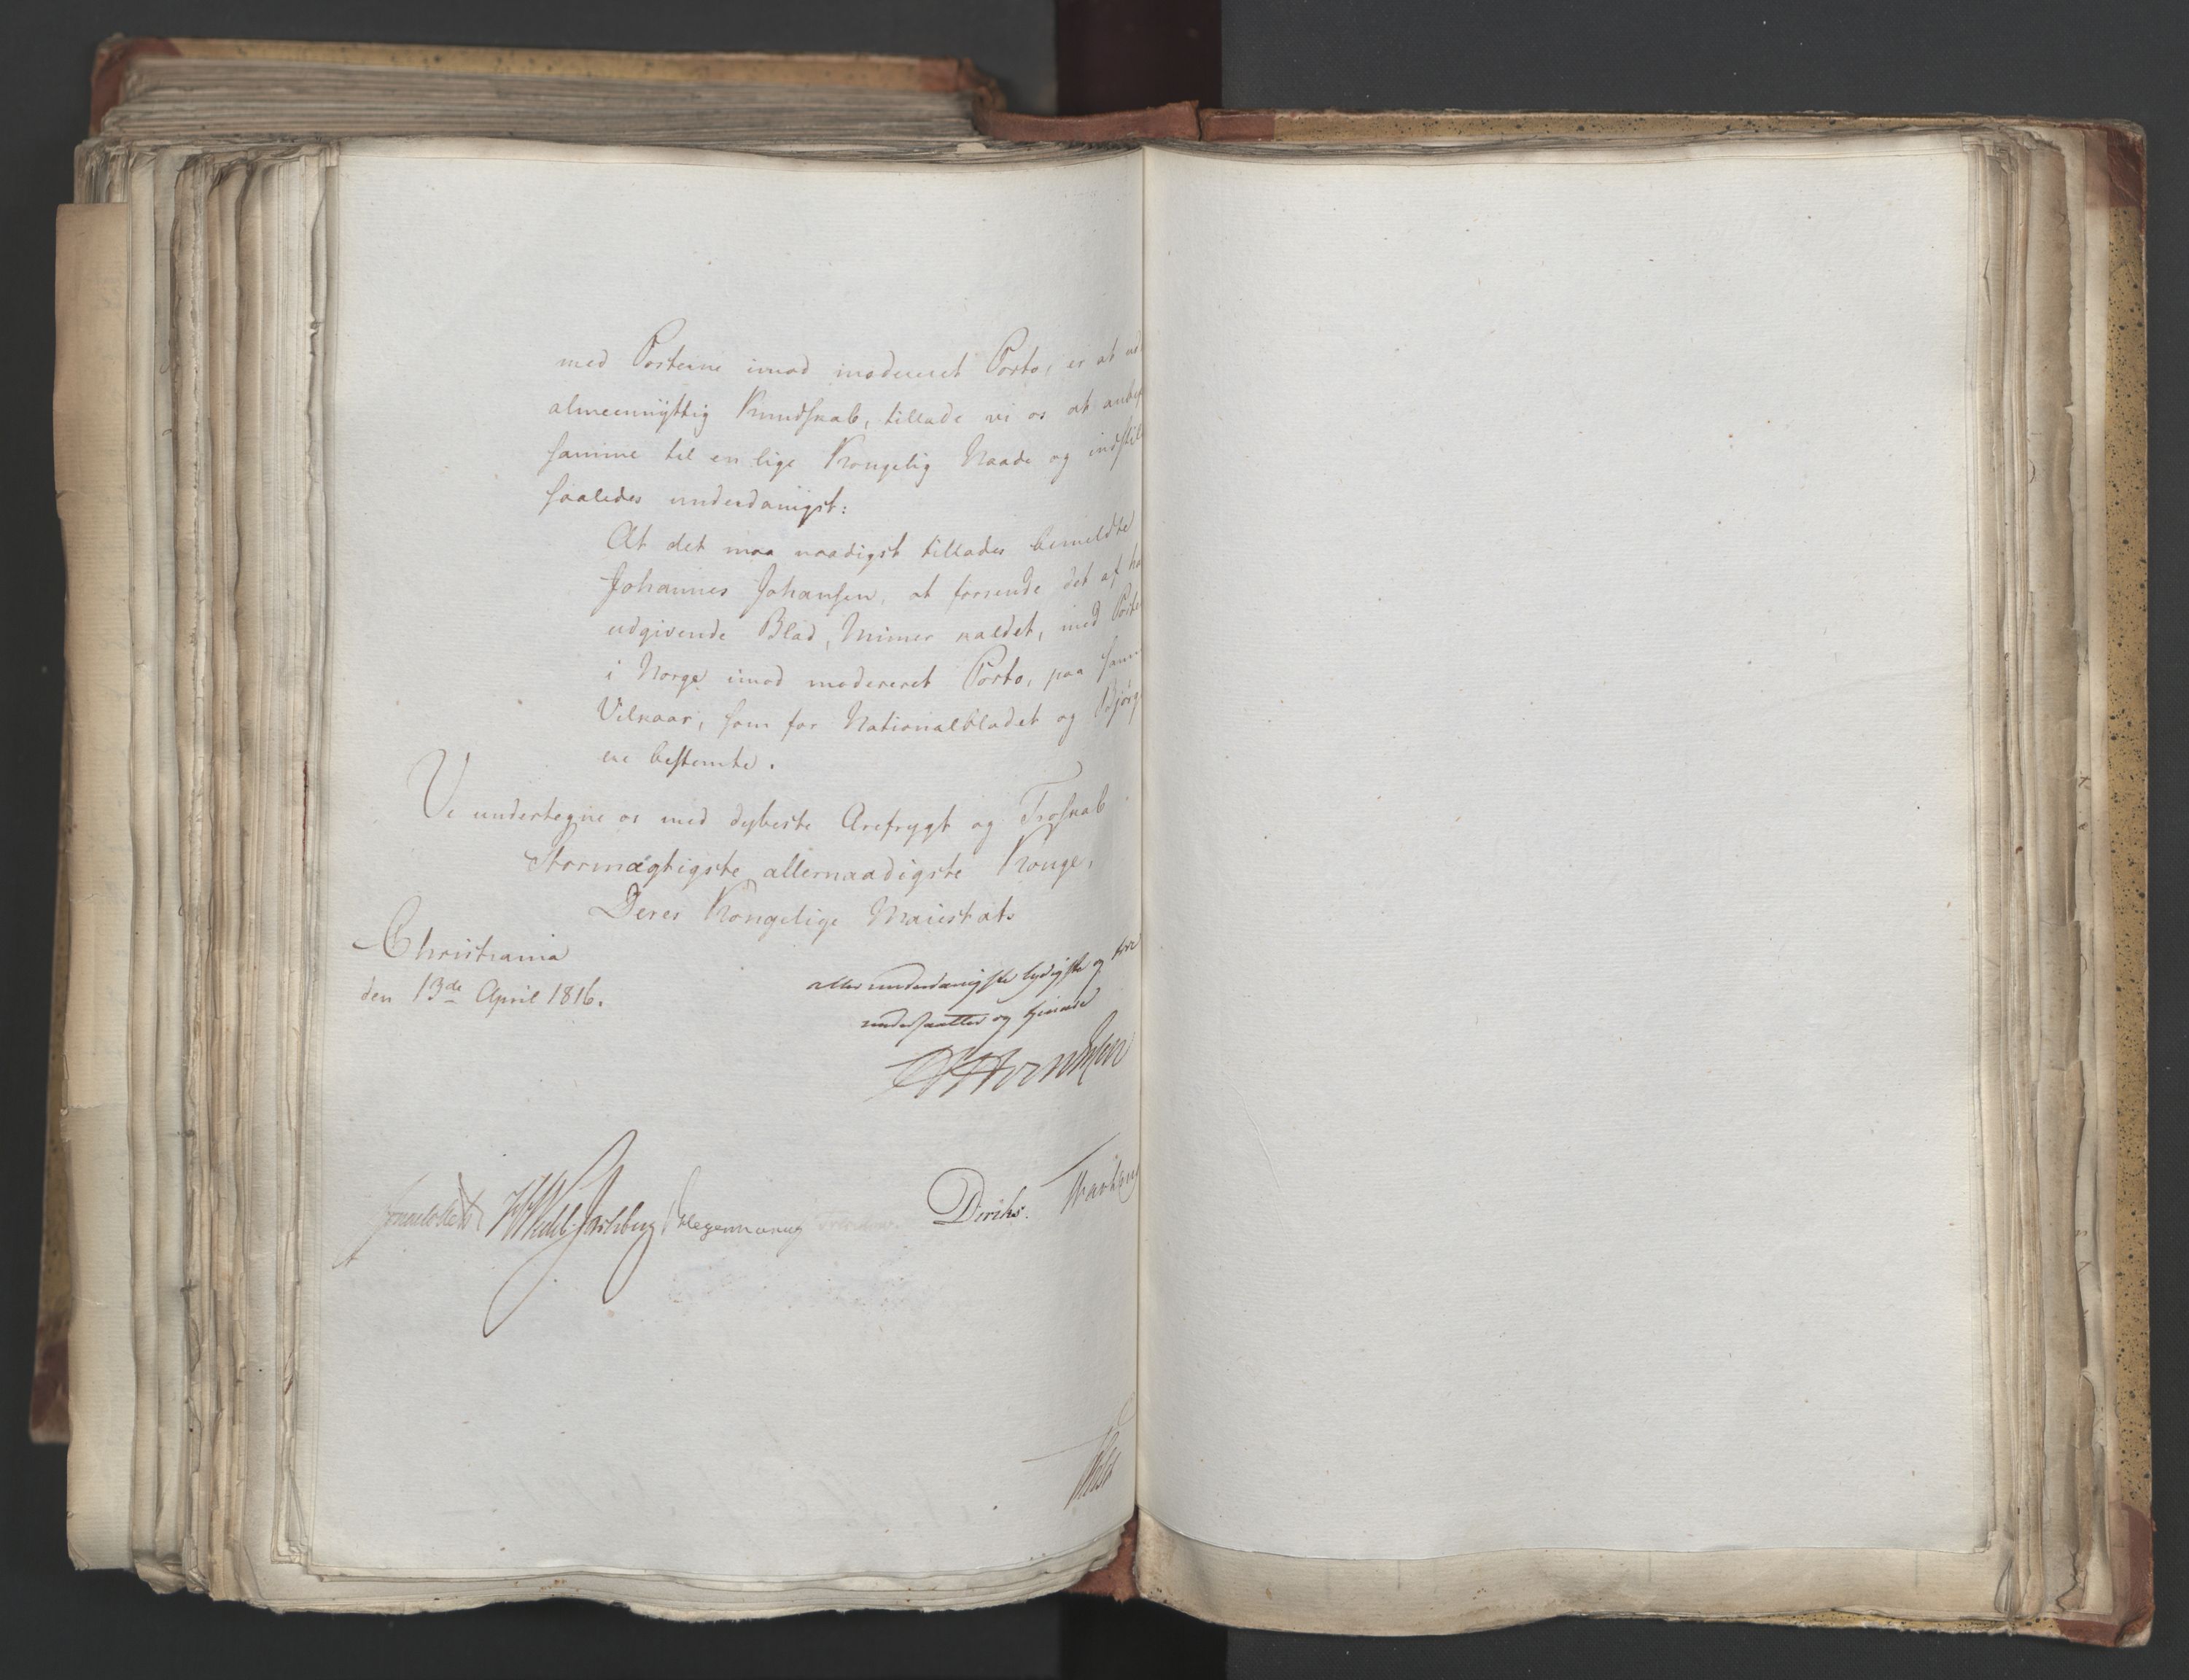 med Posterne imod modereret Porto, er at ud
almeennÿttig Kundskab, tillade vi os at anbe
samme til en lige Kongelig Naade og indstil
saaledes underdanigst:
At det maa naadigst tillades bemeldte
Johannes Johansen, at forsende det af ha
udgivende Blad, Mimer kaldet, med Poste
i Norge imod modereret Porto, paa samm
Vilkaar, som for Nationalbladet og
ere bestemte.
Vi undertegne os med dybeste Ærefrygt og Troskab
Stormægtigste allernaadigste Konge,
Deres Kongelige Majestæts
Christiania
den 13de April 1816.
allerunderdanigste lydigste og troe
undersaatter og tjenere
Wedel Jarlsberg Hegermann Diriks.